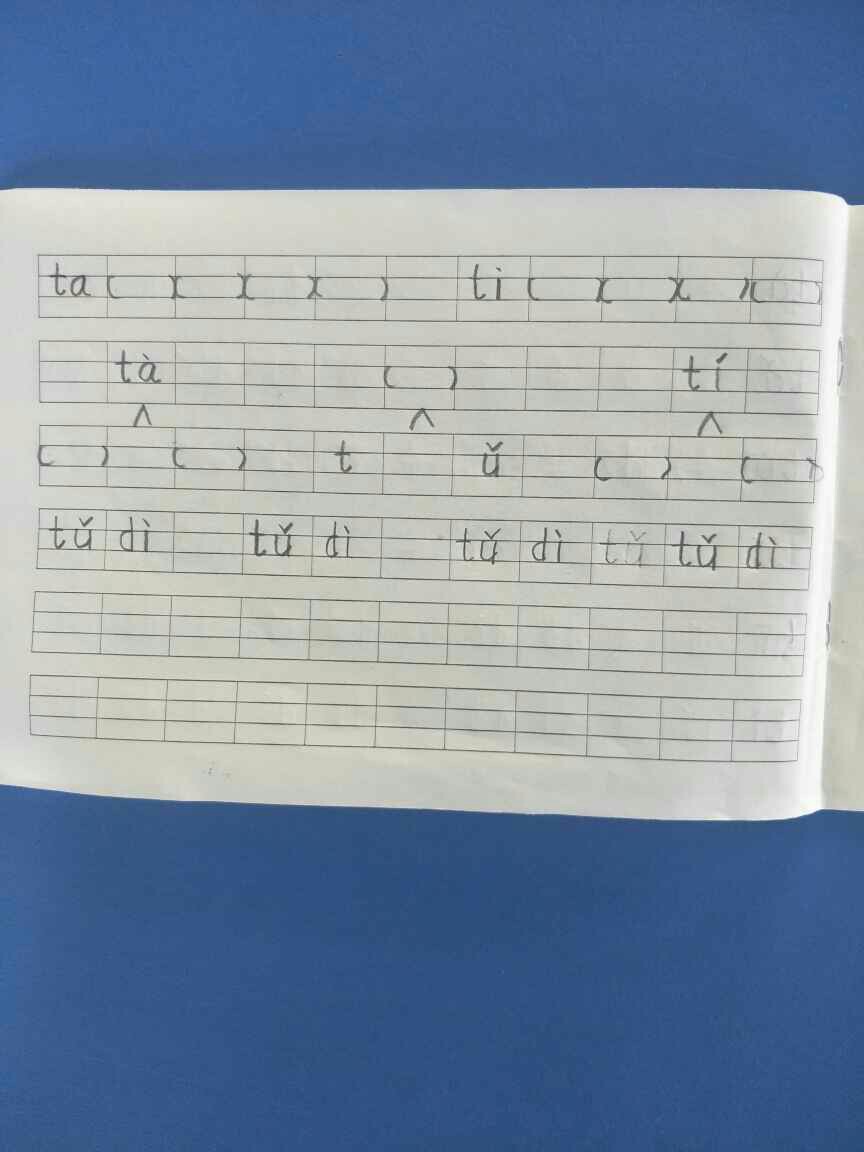 ta (  ) (  ) (  ) (  ) ti (  ) (  ) (  ) (  )
tà (  ) tí
∧ ∧ ∧
(  ) (  ) t ǔ (  ) (  )
tǔ dì tǔ dì tǔ dì tǔ tǔ dì